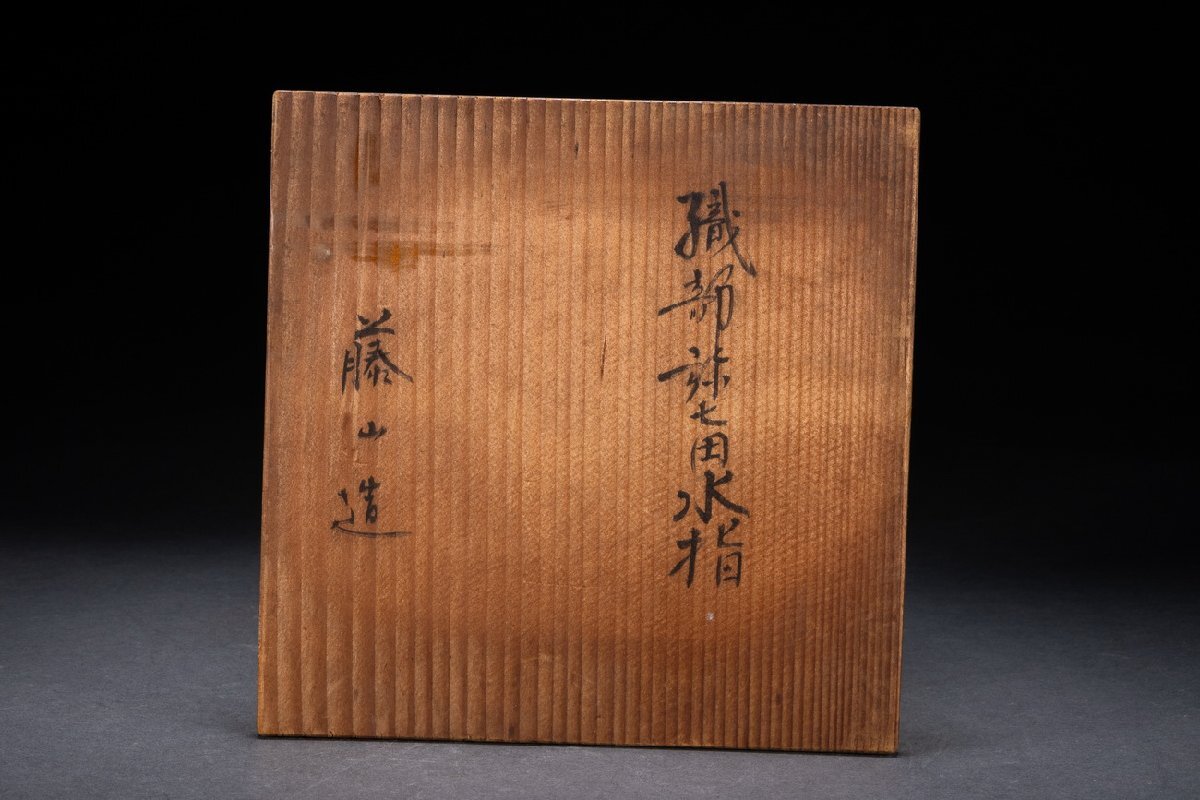 織部弥七田水指
藤山造